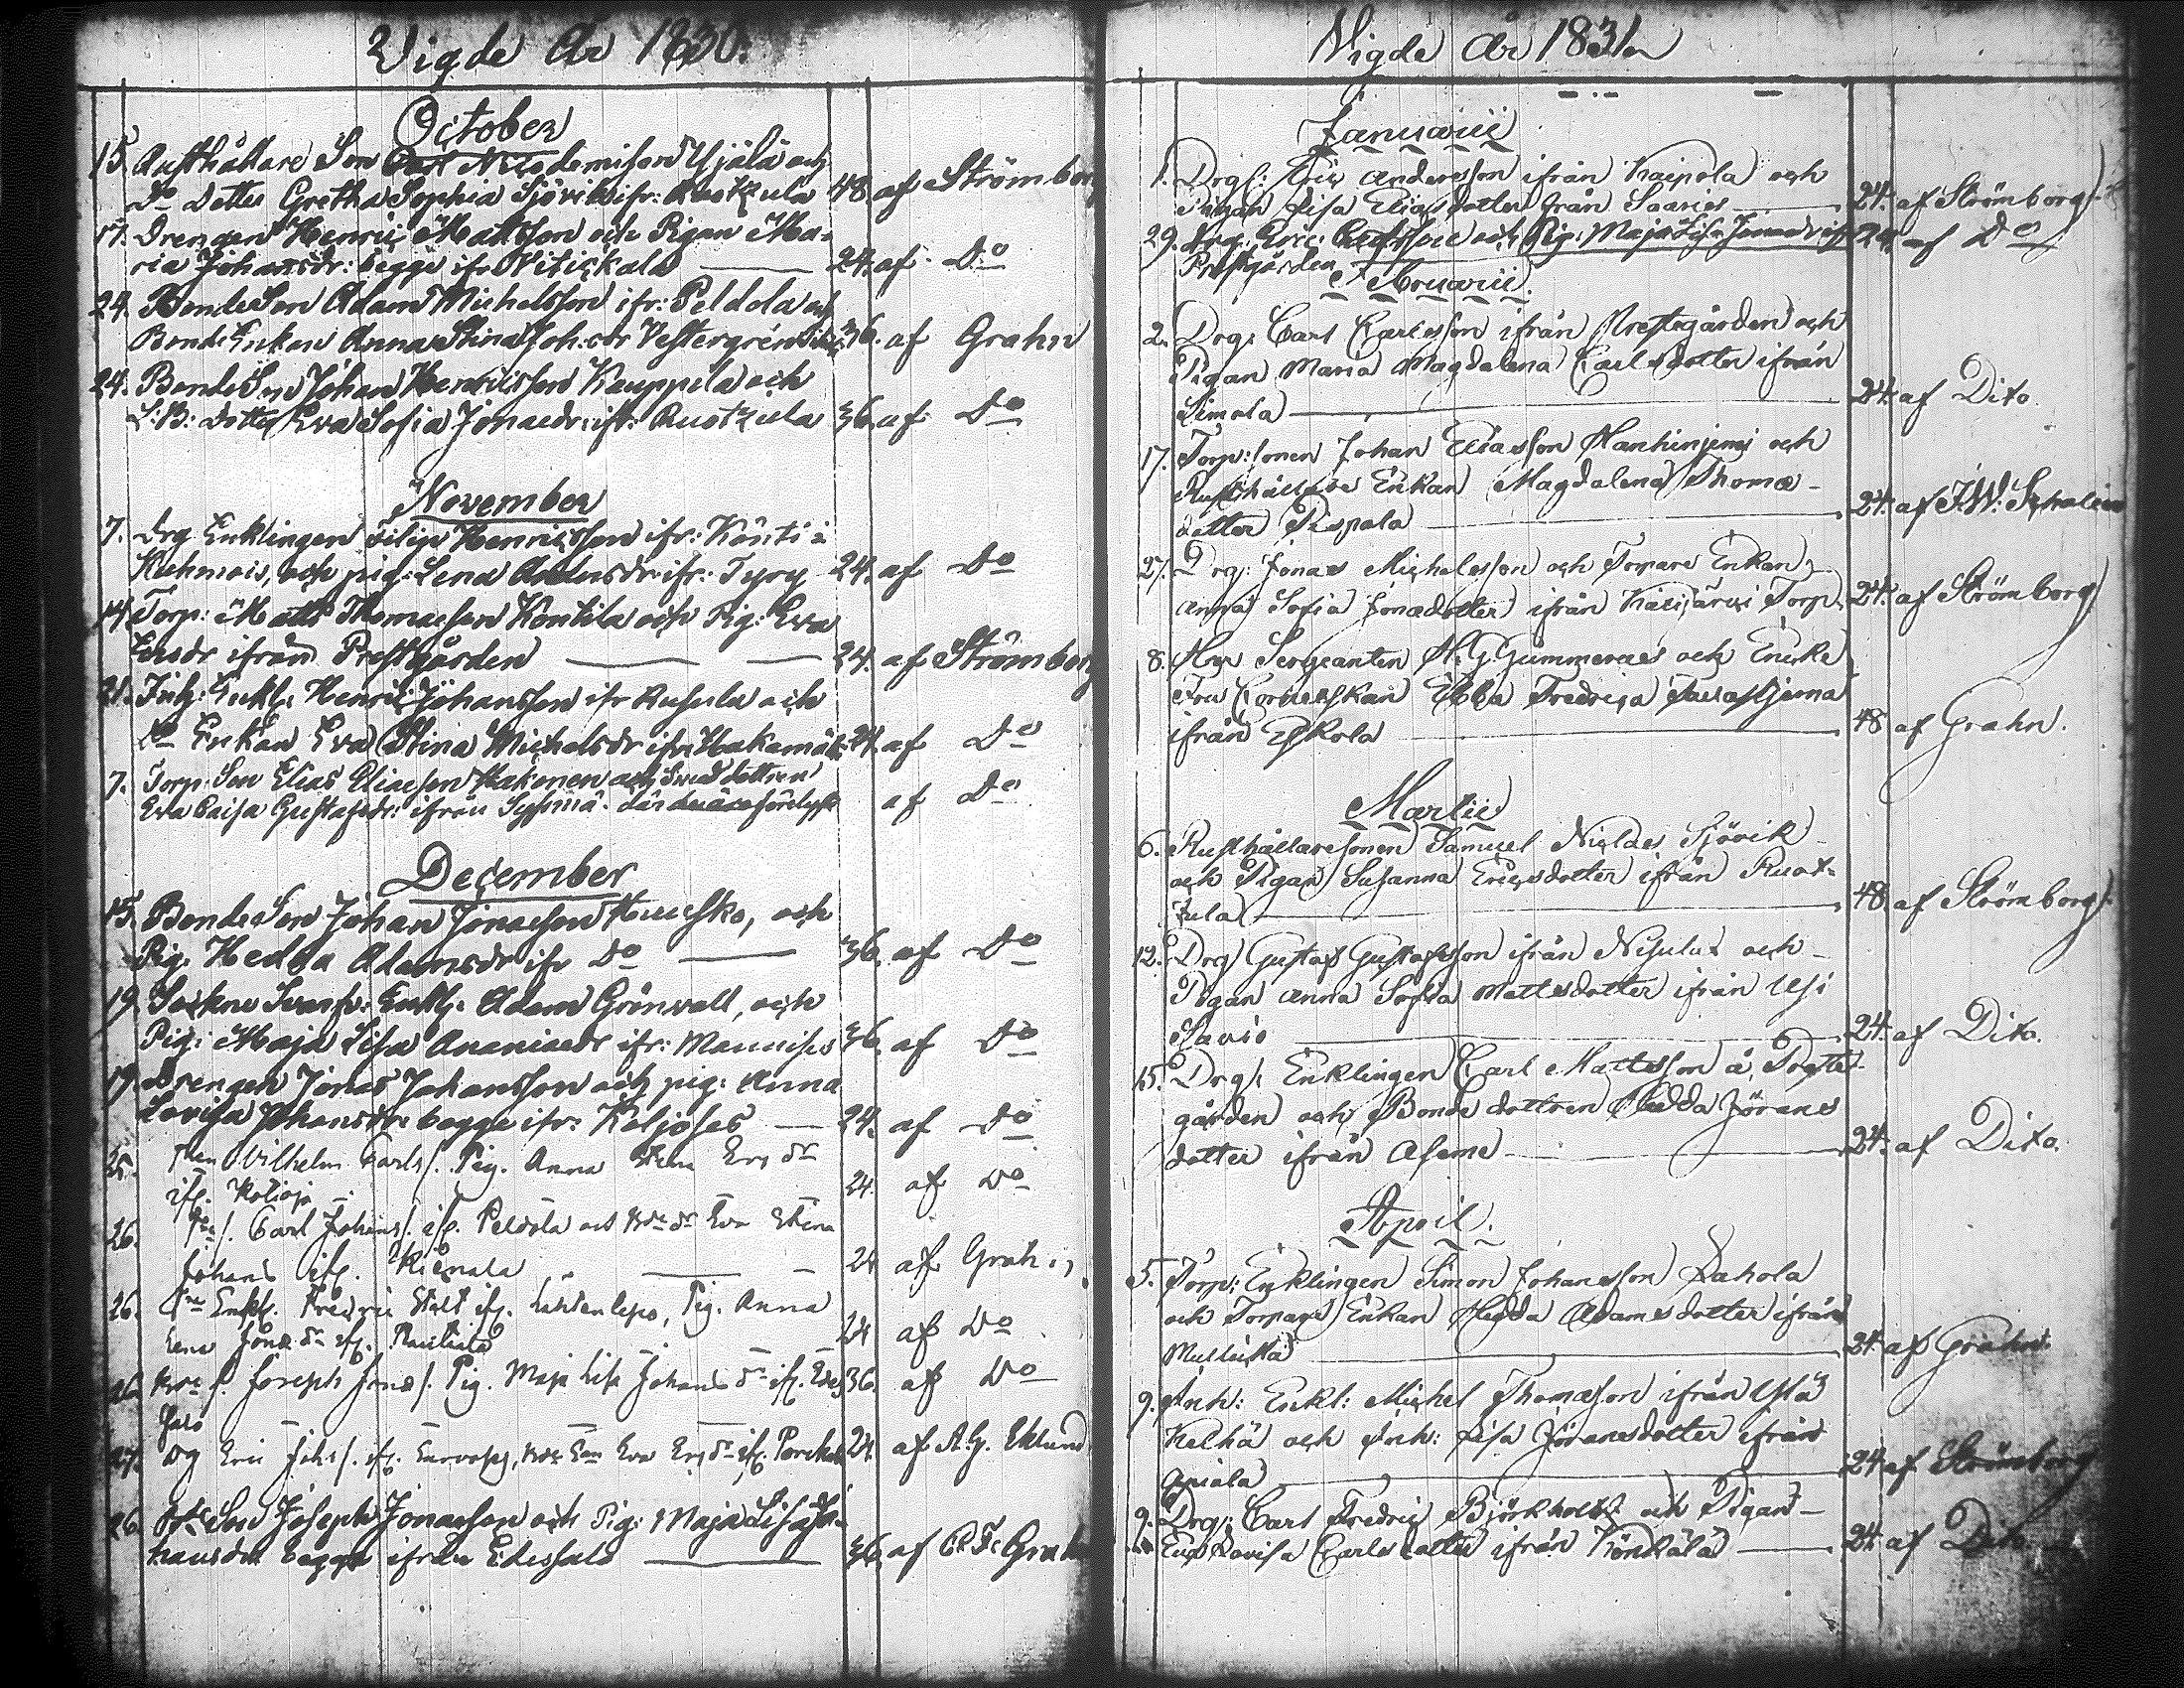 Vigde År 1830.
October
15. Rusthållare Son Carl Nicodemisson Yjälä och
Do Dotter Gretha Sophia Sjövik ifr: Ruotzula 48 af Strömborg
17. Drengen Henric Mattsson och Pigan Ma-
ria Johansdr: begge ifr Vitickala 24. af Do
24. BondeSon Adam Michelsson ifr: Peldola och
BondeEnkan Anna Stina Joh:dr Vestergrén 36. af Grahn
24. BondeSon Johan Henricsson Kauppila och
S:B: dotter Eva Sofia Jonaedr: ifr: Ruotzula 36. af Do
November
7. Drg Enklingen Filip Henricsson ifr:
Kuhmois, och pig: Lena Andersdr ifr: Tyry 24. af Do
14. Torp: Matts Thomasson Kontila och Pig: Eva
Ersdr ifrån Prestgården 24. af Strömborg
21. Inh: Enkl: Henric Johansson ifr och
Do Enkan Eva Stina Michelsdr ifr: 24. af Do
7. Torp: Son Elias Eliasson Hakonen och
Eva Caisa Gustafsdr: ifrån Sysmä. af Do
December
15. BondeSon Johan Jonasson och
Pig. Hedda Adamsdr ifr Do 36. af Do
19. Sockne Enkl: Adam Grönvall, och
Pig: Maja Lisa Ananiaedr ifr: 36. af Do
19. Drengen Jonas Johansson och pig: Anna
Lovisa Johansdr: begge ifr: Koljoses 24. af Do
25. Vilhelm Carls. Pig. Anna Stina Ers dr
ifr. 24. af Do
26. Carl Johans. ifr. Peldola och Eva Stina
Johans ifr. 24 af Grahn
26. Enkl. Fredric ifr. Lahdenlepo, Pig. Anna
Lena Jonae dr ifr. 24 af Do
26. Joseph Jonas. Pig. Maja Lisa Johans dr ifr. Edes 36. af Do
salo
27. Dg Eric Johs. ifr. Eva Ers dr ifr. 24. af A.G. Eklund
26. Son Joseph Jonasson och Pig: Maja Lisa Jo-
hansdr begge ifrån Edessalo 36. af C. F. Grahn
Vigde År 1831.
Januarii
1. Drgl: Eric Andersson ifrån Kaipola och
Pigan Lisa Eliasdotter från Saaries 24. af Strömborg.
29. Drg: Eric och Pig: Maja Lisa ifr 24. af Do
Prestgården
Februarii.
2. Drg: Carl Carlsson ifrån Prestegården och
Pigan Maria Magdalena Carlsdotter ifrån
Simola 24. af Dito.
17. Torp: sonen Johan Eliasson och
Rusthållare Enkan Magdalena Thomae-
dotter Pispala 24. af
27. Drg: Jonas Michelsson och Torpare Enkan
Anna Sofia Jonaedotter ifrån Torp. 24. af Strömborg
8. Herr Sergeanten H. G. Gummerus och Encke
Fru Ebba Fredrica Tavastjerna
ifrån Eskola 48 af Grahn.
Martii
6. Rusthållaresonen Samuel Sjövik
och Pigan Susanna Ericsdotter ifrån Ruot-
zula 48. af Strömborg.
12. Drg Gustaf Gustafsson ifrån Nisula och
Pigan Anna Sofia Mattsdotter ifrån
24. af Dito.
15. Drg: Enklingen Carl Mattsson å
gården och Bonde dottren Hedda Jörans
dotter ifrån 24. af Dito.
April.
5. Torp: Enklingen Simon Johansson Rahola
och Torpare Enkan Hedda Adamsdotter ifrån
24. af Grahn.
9. Inh: Enkl: Michel Thomasson ifrån Ylä
Kelhä och Inh: Lisa Jöransdotter ifrån
24. af Strömborg
9. Drg: Carl Fredric Björkholtz och Pigan
Eva Lovisa Carlsdotter ifrån 24. af Dito